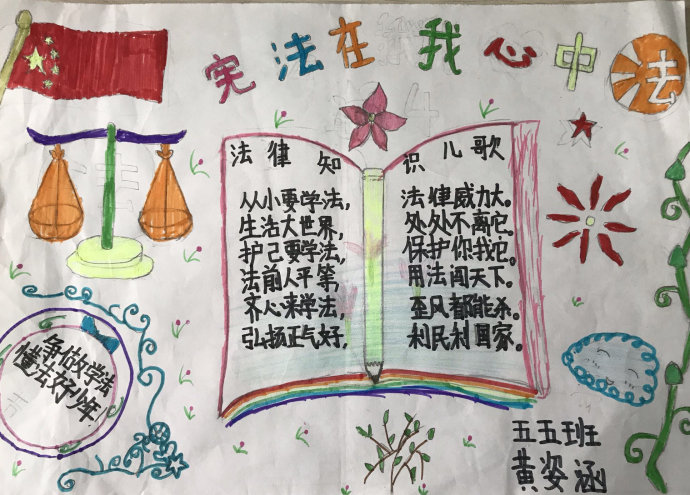 宪法在我心中
法
法律知识儿歌
从小要学法,
生活大世界,
护己要学法,
法前人平等,
齐心来学法,
弘扬正气好,
法律威力大。
处处不离它。
保护你我它。
用法闯天下。
歪风都能杀。
利民利国家。
争做学法
懂法好少年.
五五班
黄姿涵